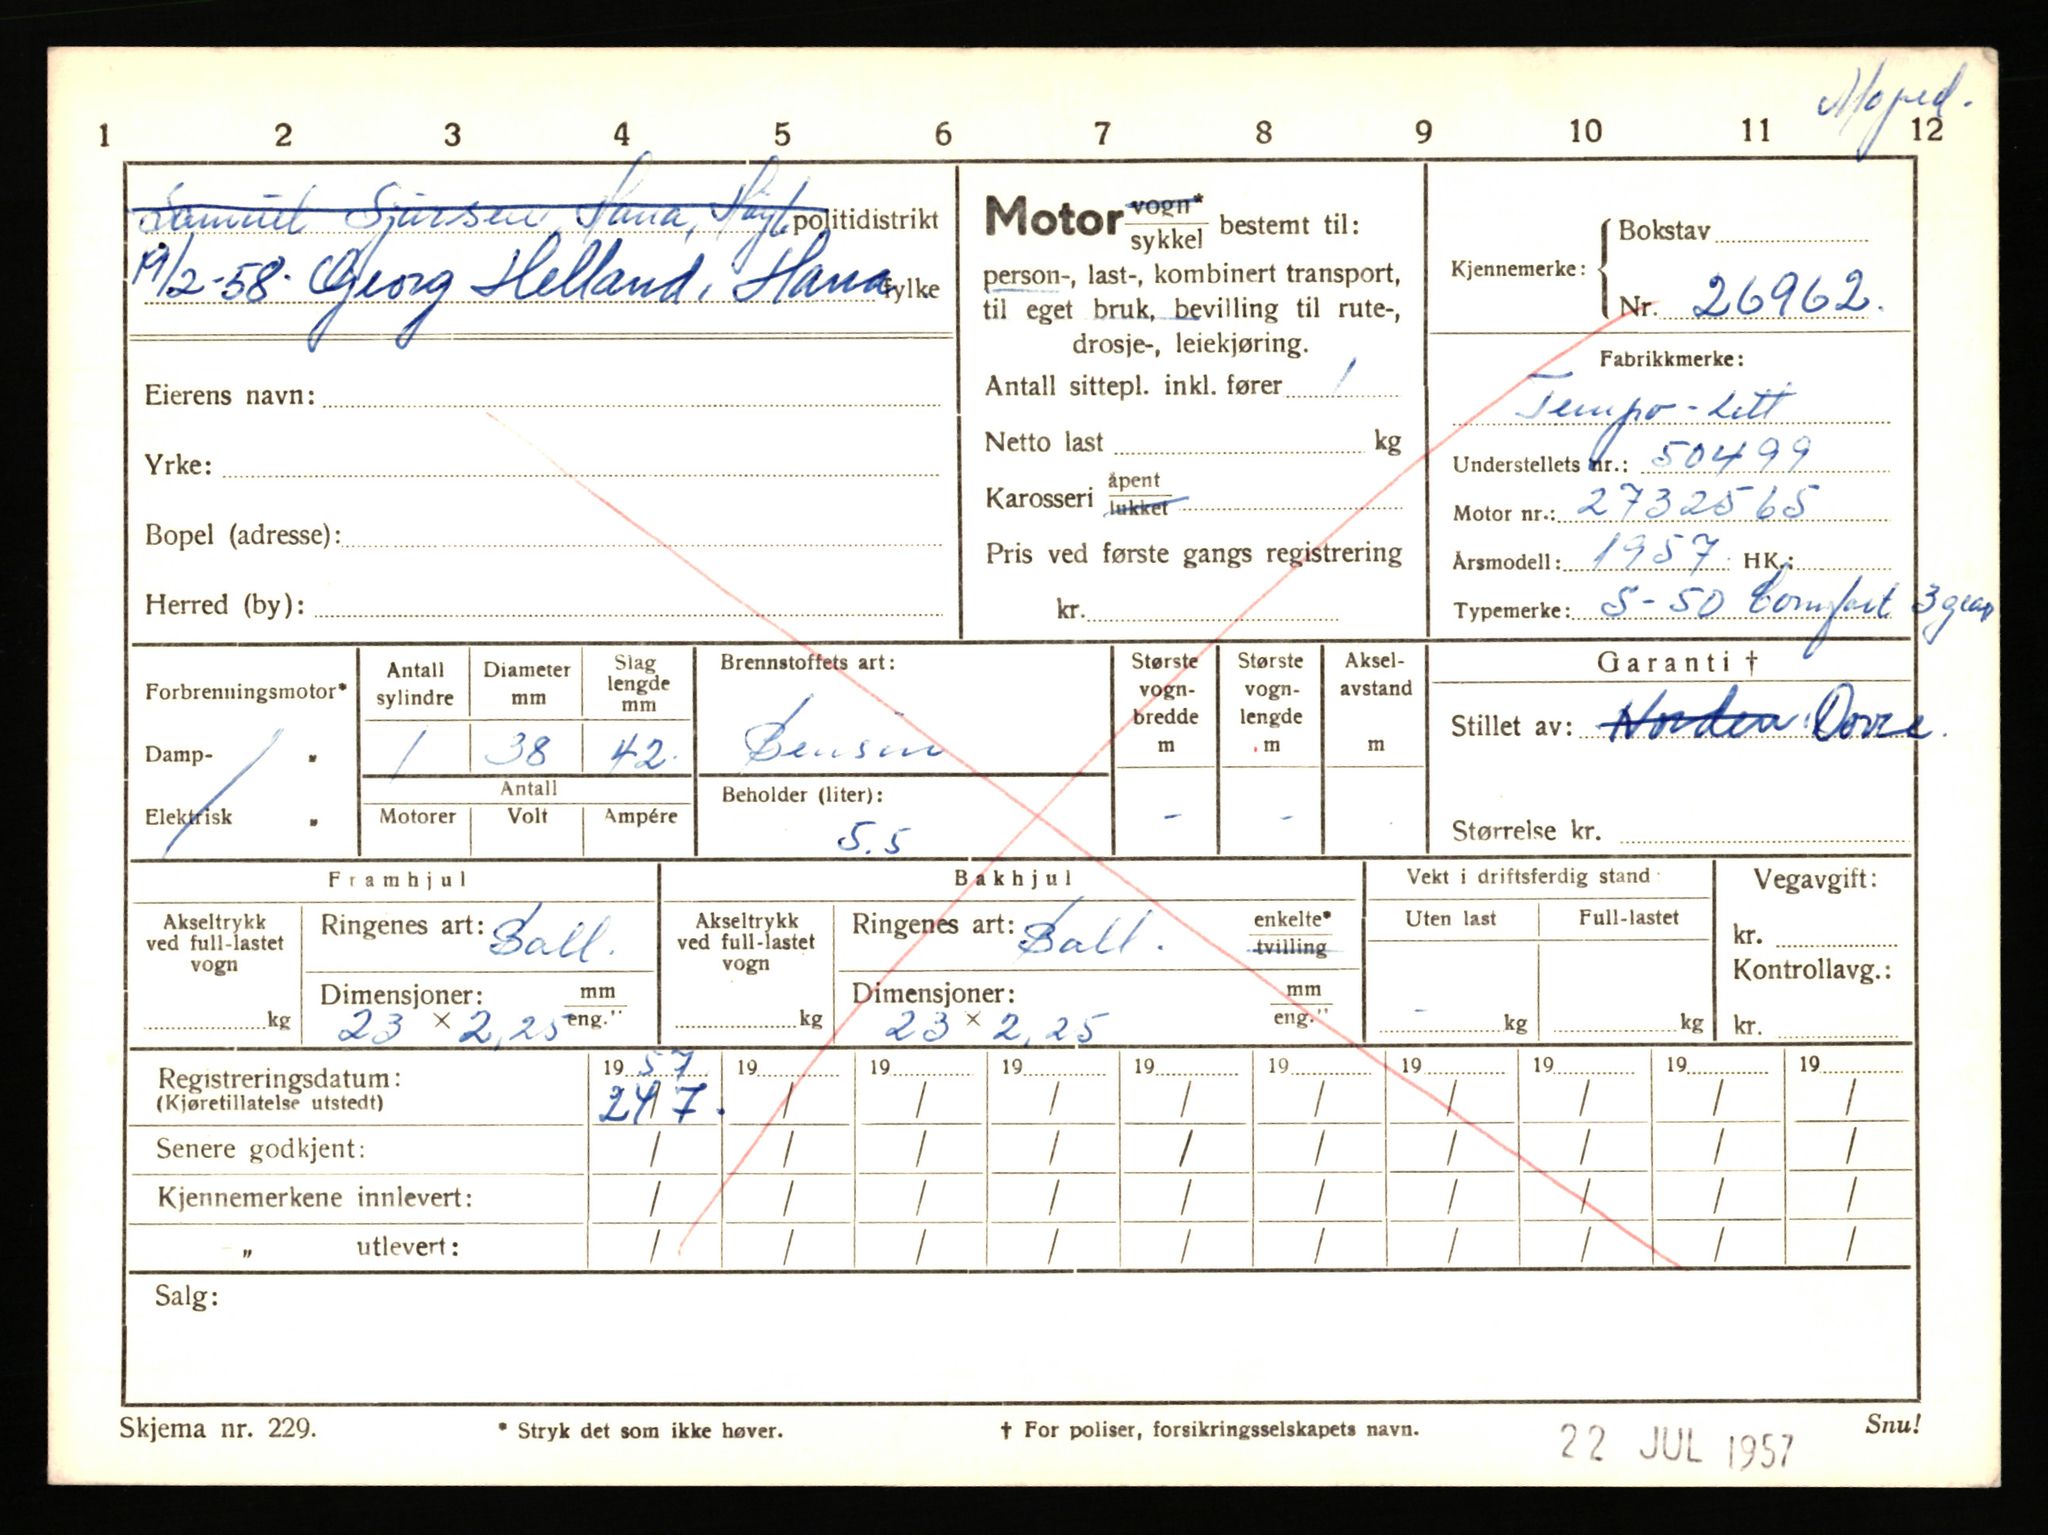 Moped.
1 2 3 4 5 6 7 8 9 10 11 12
Samuel Sjursen, Hana, Høyl. politidistrikt
19/2-58. Georg Helland, Hana fylke
Eierens navn:
Yrke:
Bopel (adresse):
Herred (by):
Motor vogn*
sykkel bestemt til:
person-, last-, kombinert transport,
til eget bruk, bevilling til rute-,
drosje-, leiekjøring.
Antall sittepl. inkl. fører 1
Netto last kg
Karosseri åpent
lukket
Pris ved første gangs registrering
kr.
Kjennemerke: Bokstav
Nr. 26962.
Fabrikkmerke:
Tempo-Lett
Understellets nr.: 50499
Motor nr.: 2732565
Årsmodell: 1957 HK.:
Typemerke: S-50 Comfort 3 gear
Forbrenningsmotor*
Damp- "
Elektrisk "
Antall sylindre
1
Diameter mm
38
Slag lengde mm
42.
Antall
Motorer Volt Ampére
Brennstoffets art:
Bensin
Beholder (liter):
5.5
Største vogn-bredde m
-
Største vogn-lengde m
-
Aksel-avstand m
Garanti †
Stillet av: Norden Dovre.
Størrelse kr.
Framhjul
Akseltrykk
ved full-lastet
vogn
kg
Ringenes art: Ball.
Dimensjoner: mm
23 x 2,25 eng."
Bakhjul
Akseltrykk
ved full-lastet
vogn
kg
Ringenes art: Ball. enkelte*
tvilling
Dimensjoner: mm
23 x 2,25 eng."
Vekt i driftsferdig stand
Uten last Full-lastet
- kg kg
Vegavgift:
kr.
Kontrollavg.:
kr.
Registreringsdatum: 1957 19 19 19 19 19 19 19 19 19
(Kjøretillatelse utstedt) 24/7. / / / / / / / / /
Senere godkjent: / / / / / / / / / /
Kjennemerkene innlevert: / / / / / / / / / /
" utlevert: / / / / / / / / / /
Salg:
Skjema nr. 229. * Stryk det som ikke høver. † For poliser, forsikringsselskapets navn. Snu!
22 JUL 1957